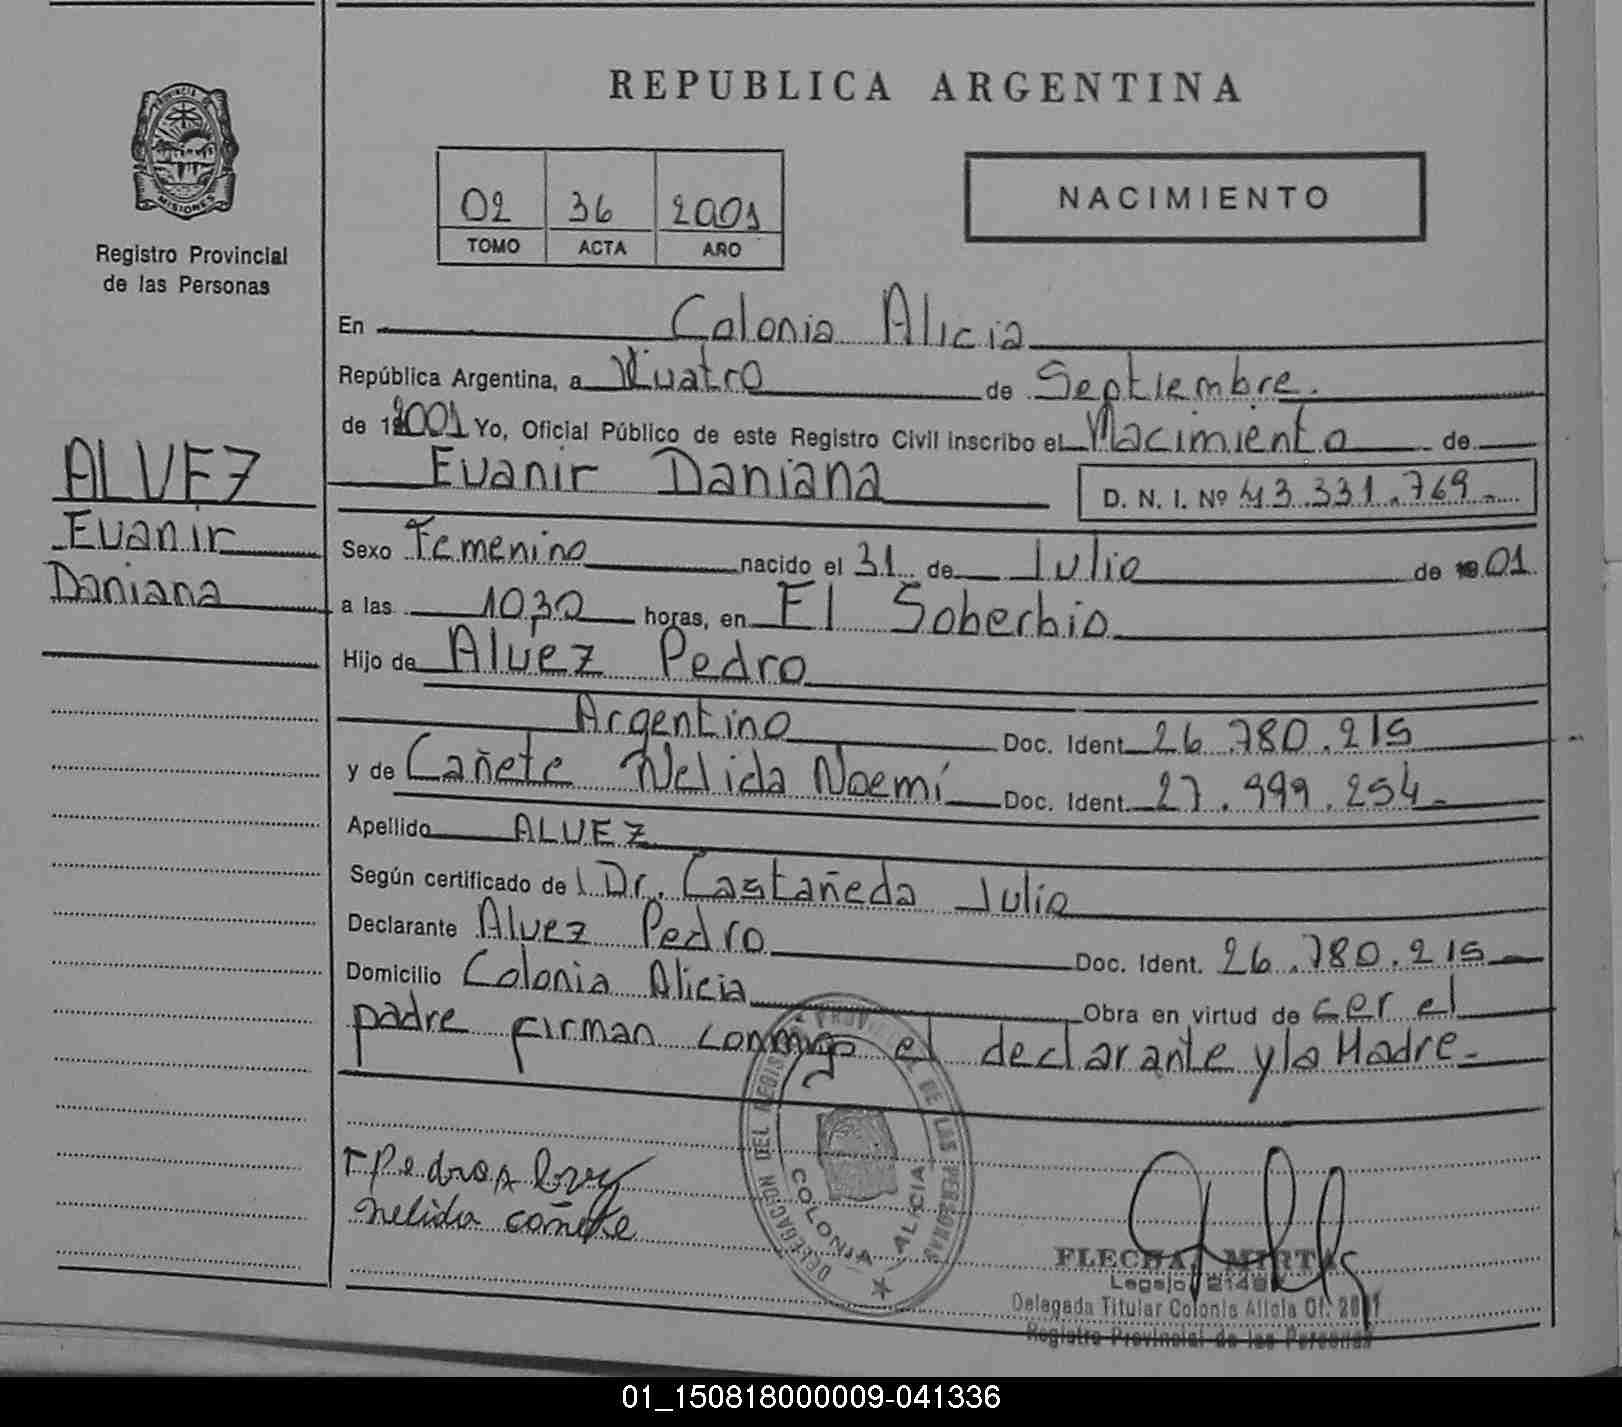 PROVINCIA DE
MISIONES
Registro Provincial
de las Personas
ALVEZ
Evanir
Daniana
REPUBLICA ARGENTINA
02 36 2001
TOMO ACTA AÑO
NACIMIENTO
En Colonia Alicia
República Argentina, a Cuatro de Septiembre.
de 2001 Yo, Oficial Público de este Registro Civil inscribo el Nacimiento de
Evanir Daniana D. N. I. Nº 43.331.769.-
Sexo Femenino nacido el 31 de Julio de 01
a las 10,30 horas, en El Soberbio
Hijo de Alvez Pedro
Argentino Doc. Ident. 26.780.215
y de Cañete Nelida Noemí Doc. Ident. 27.999.254.-
Apellido ALVEZ
Según certificado de Dr. Castañeda Julio
Declarante Alvez Pedro Doc. Ident. 26.780.215
Domicilio Colonia Alicia Obra en virtud de cer el
padre firman conmigo el declarante y la Madre.-
DELEGACION DEL REGISTRO PROVINCIAL DE LAS PERSONAS
COLONIA ALICIA
Pedro
nelida cañete
FLECHA MIRTA
Legajo
Delegada Titular Colonia Alicia Of. 2001
Registro Provincial de las Personas
01_150818000009-041336